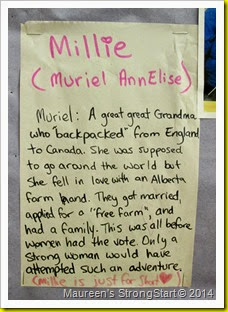 Millie
(Muriel AnnElise)
Muriel: A great great Grandma
who "backpacked" from England
to Canada. She was supposed
to go around the world but
She fell in love with an Alberta
farm hand. They got married,
applied for a "free farm", and
had a family. This was all before
women had the vote. Only a
Strong woman would have
attempted such an adventure.
(millie is just for Short ♥)
Maureen's StrongStart© 2014